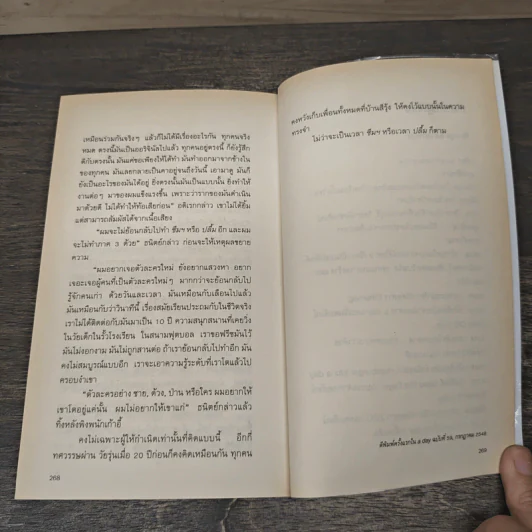 เหมือนร่วมกันจริงๆ แล้วก็ไม่ได้มีเรื่องอะไรกัน ทุกคนจริง
หมด ตรงนี้มันเป็นออริจินัลไปแล้ว ทุกคนอยู่ตรงนี้ ก็ยังรู้สึก
ดีกับตรงนั้น มันแค่ขอเพียงให้ได้ทำ มันทำออกมาจากข้างใน
ของทุกคน มันเลยกลายเป็นคาอยู่จนถึงวันนี้ เอามาดู มันก็
ยังเป็นอะไรของมันได้อยู่ ยิ่งตรงนั้นมันเป็นแบบนั้น ยิ่งทำให้
งานต่อๆ มาของผมแข็งแรงขึ้น เพราะว่ารากของมันดำเนิน
มาด้วยดี ไม่ได้ทำให้ท้อเสียก่อน" อดิเรกกล่าว เขาไม่ได้ยิ้ม
แต่สามารถสัมผัสได้จากเนื้อเสียง
"ผมจะไม่ย้อนกลับไปทำ ซึมฯ หรือ ปลื้ม อีก และผม
จะไม่ทำภาค 3 ด้วย" ธนิตย์กล่าว ก่อนจะให้เหตุผลขยาย
ความ
"ผมอยากเจอตัวละครใหม่ ยังอยากแสวงหา อยาก
เจอะเจอผู้คนที่เป็นตัวละครใหม่ๆ มากกว่าจะย้อนกลับไป
รู้จักคนเก่า ด้วยวันและเวลา มันเหมือนกับเลือนไปแล้ว
มันเหมือนกับว่าวินาทีนี้ เรื่องสมัยเรียนประถมกับในชีวิตจริง
เราไม่ได้ติดต่อกับมันมาเป็น 10 ปี ความสนุกสนานที่เคยวิ่ง
ในวัยเด็กในรั้วโรงเรียน ในสนามฟุตบอล เราขอฟรีซมันไว้
มันไม่งอกงาม มันไม่ถูกสานต่อ ถ้าเราย้อนกลับไปทำอีก มัน
คงไม่สมบูรณ์แบบอีก เราจะเอาความรู้ระดับที่เราโตแล้วไป
ครอบงำเขา
"ตัวละครอย่าง ชาย, ด้วง, ป่าน หรือใคร ผมอยากให้
เขาโตอยู่แค่นั้น ผมไม่อยากให้เขาแก่" ธนิตย์กล่าวแล้ว
ทิ้งหลังพิงพนักเก้าอี้
คงไม่เฉพาะผู้ให้กำเนิดเท่านั้นที่คิดแบบนี้ อีกกี่
ทศวรรษผ่าน วัยรุ่นเมื่อ 20 ปีก่อนก็คงคิดเหมือนกัน ทุกคน
268
คงหวังเก็บเพื่อนทั้งหมดที่บ้านสีรุ้ง ให้คงไว้แบบนั้นในความ
ทรงจำ
ไม่ว่าจะเป็นเวลา ซึมฯ หรือเวลา ปลื้ม ก็ตาม
ตีพิมพ์ครั้งแรกใน a day ฉบับที่ 59, กรกฎาคม 2548
269